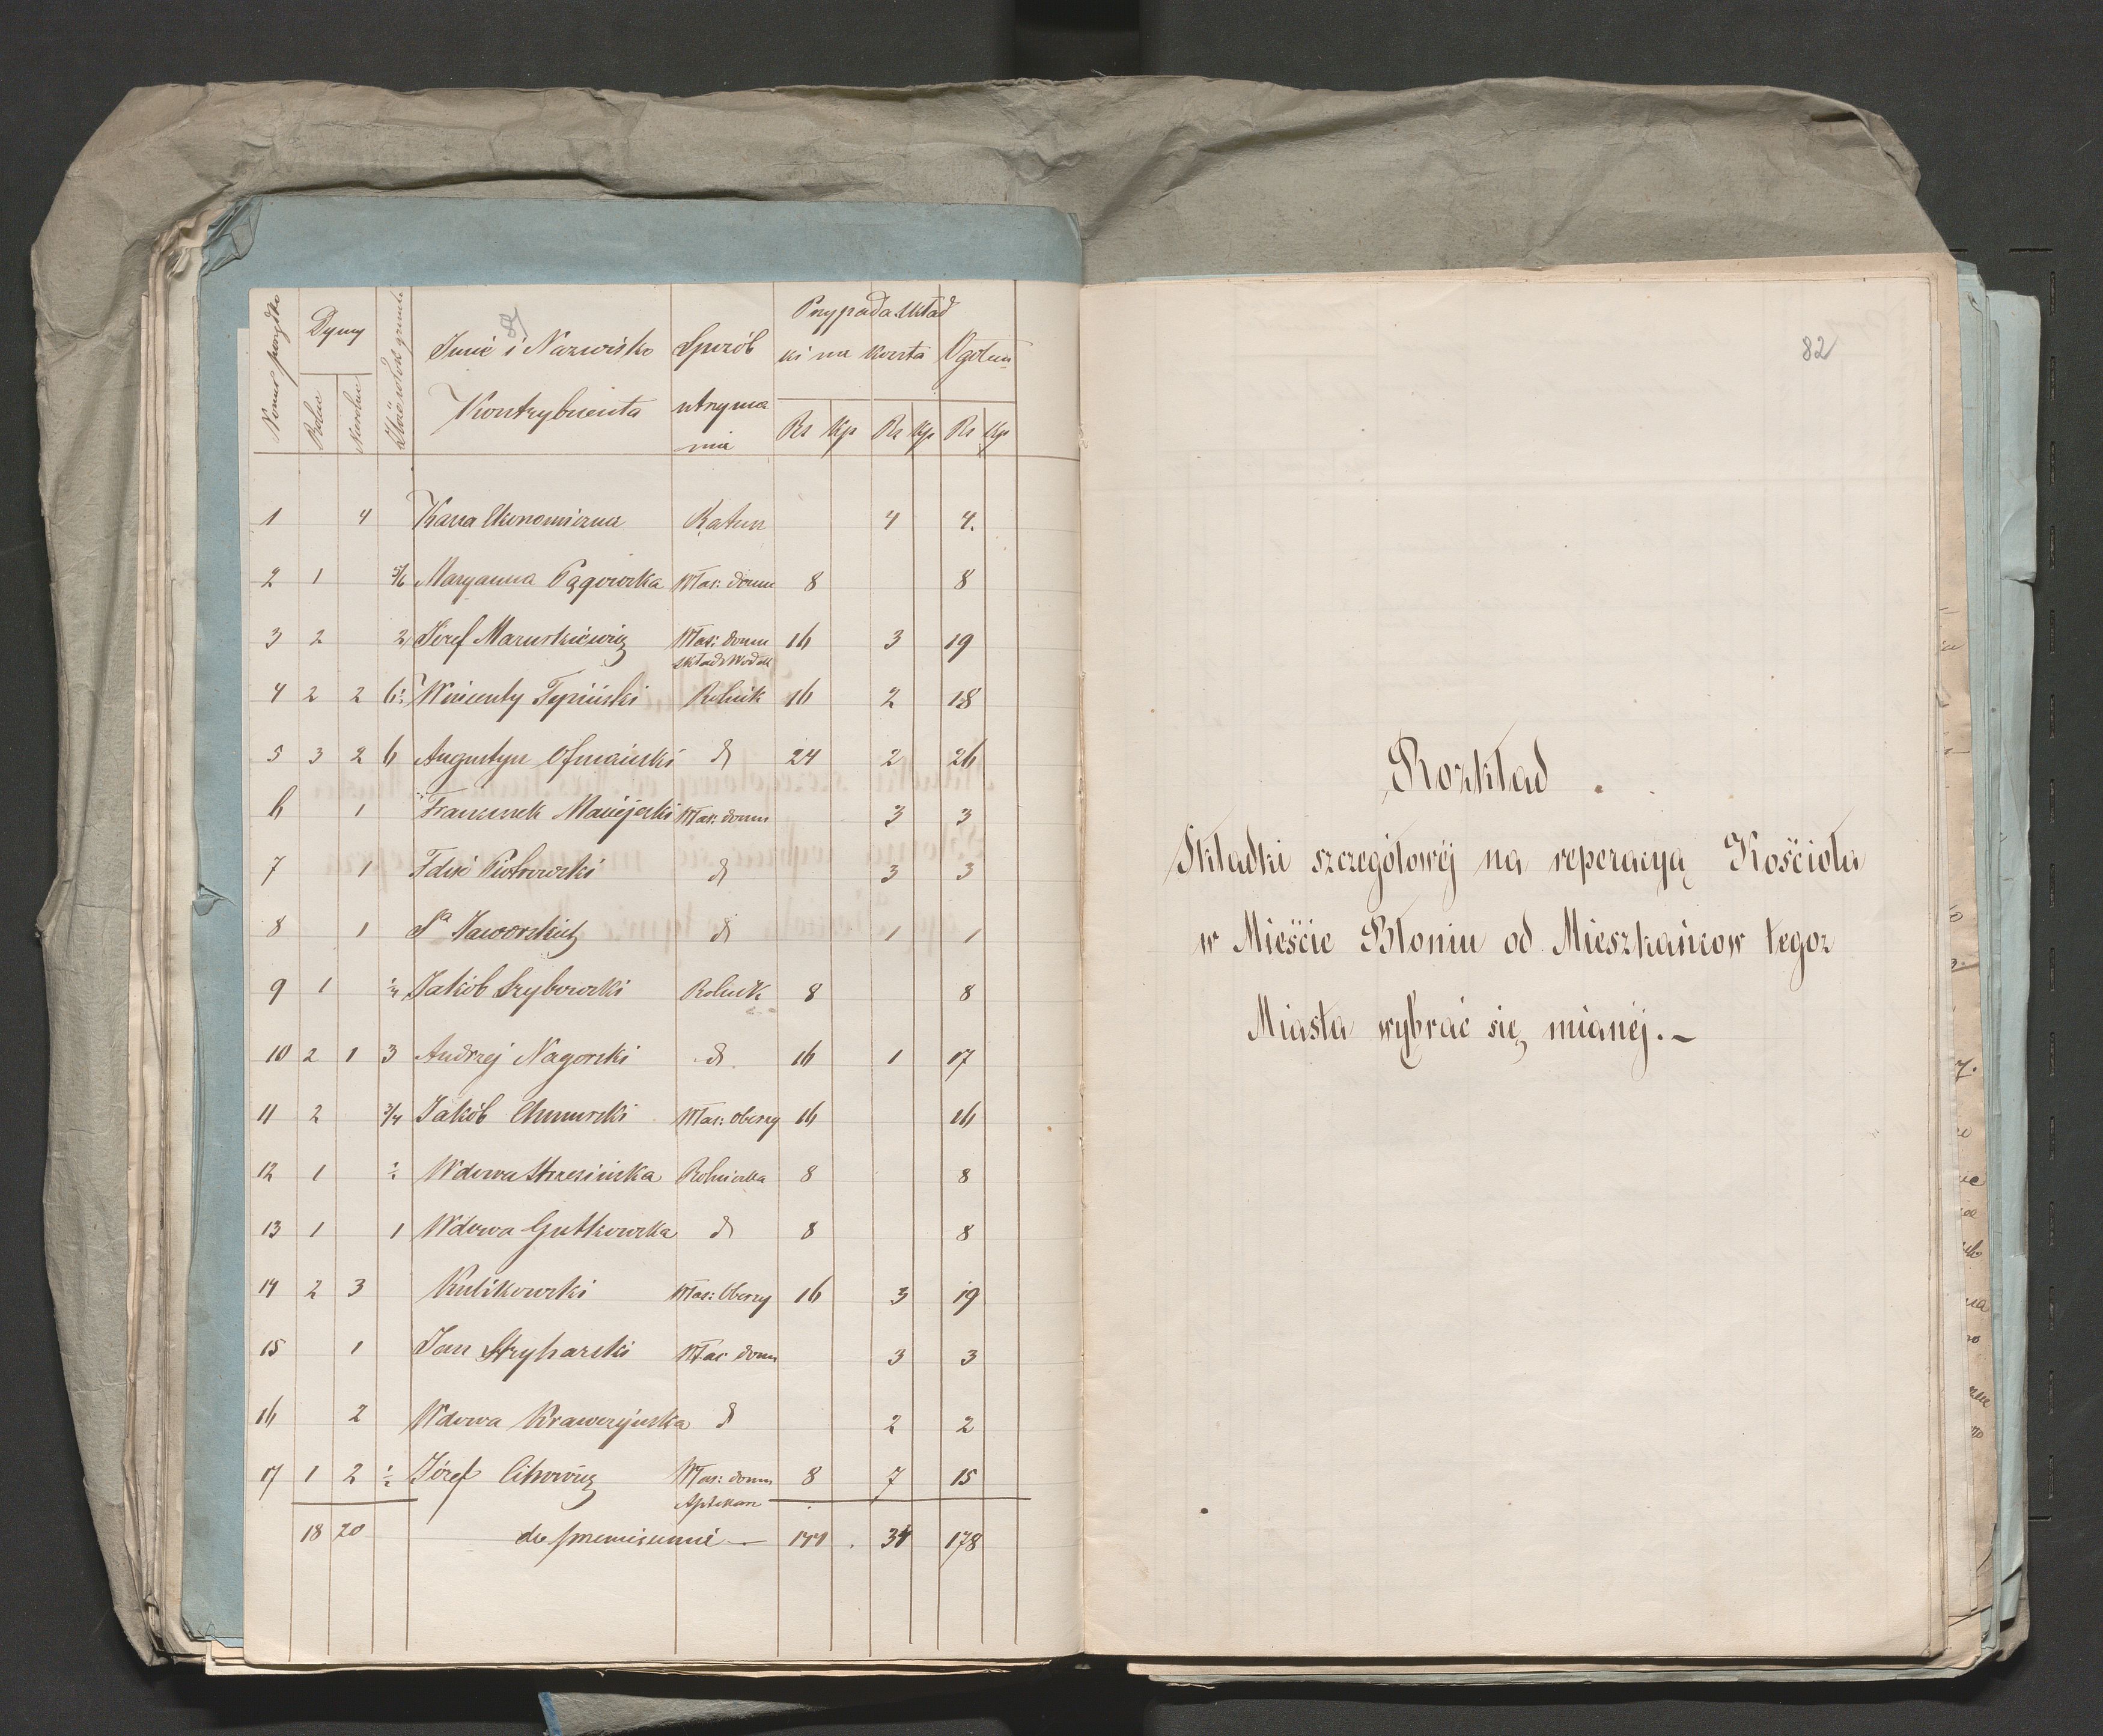 Numer porządko
Dymy
Rolne
Imie i Nazwisko
Kontrybuenta
Sposób
utrzyma
nia
Przypada Skład
ki na koszta
Ogółem
Rs Kp Rs Kp Rs Kp
1 4 Kassa Ekonomiczna Ratusz 4 4.
2 1 Maryanna Pągowska Właś: domu 8 8
3 2 2 Józef Maruszkiewicz Właś: domu 16 3 19
skład Wódek
4 2 2 6½ Wincenty Rolnik 16 2 18
5 3 2 6 Augustyn Ofmański d 24 2 26
6 1 Franciszek Maciejeski Właś: domu 3 3
7 1 Piotrowski d 3 3
8 1 Sa Jaworskich d 1 1
9 1 Jakób Rolnik 8 8
10 2 1 3 Andrzej Nagorski d 16 1 17
11 2 3/4 Jakób Chmurski Właś: Oberzy 16 16
12 1 ½ Wdowa Strzesińska Rolniczka 8 8
13 1 1 Wdowa Gutkowska d 8 8
14 2 3 Kulikowski Właś: Oberzy 16 3 19
15 1 Jan Stryharski Właś domu 3 3
16 2 Wdowa Krawczyńska d 2 2
17 1 2 ½ Józef Właś: domu 8 7 15
Aptekarz
18 20 do przeniesienia — 144 . 34 178
82
Rozkład .
Składki szczegółowéj na reperacyą Kościoła
w Mieście Błoniu od Mieszkańcow tegoz
Miasta wybrać się mianéj. –